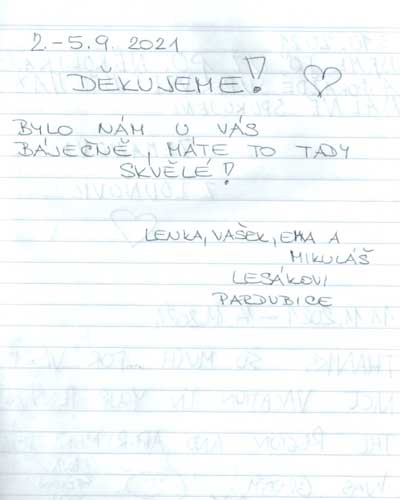 2.-5.9.2021
DĚKUJEME!
BYLO NÁM U VÁS
BÁJEČNĚ, MÁTE TO TADY
SKVĚLÉ!
LENKA, VAŠEK, EMA A
MIKULÁŠ
LESÁKOVI
PARDUBICE